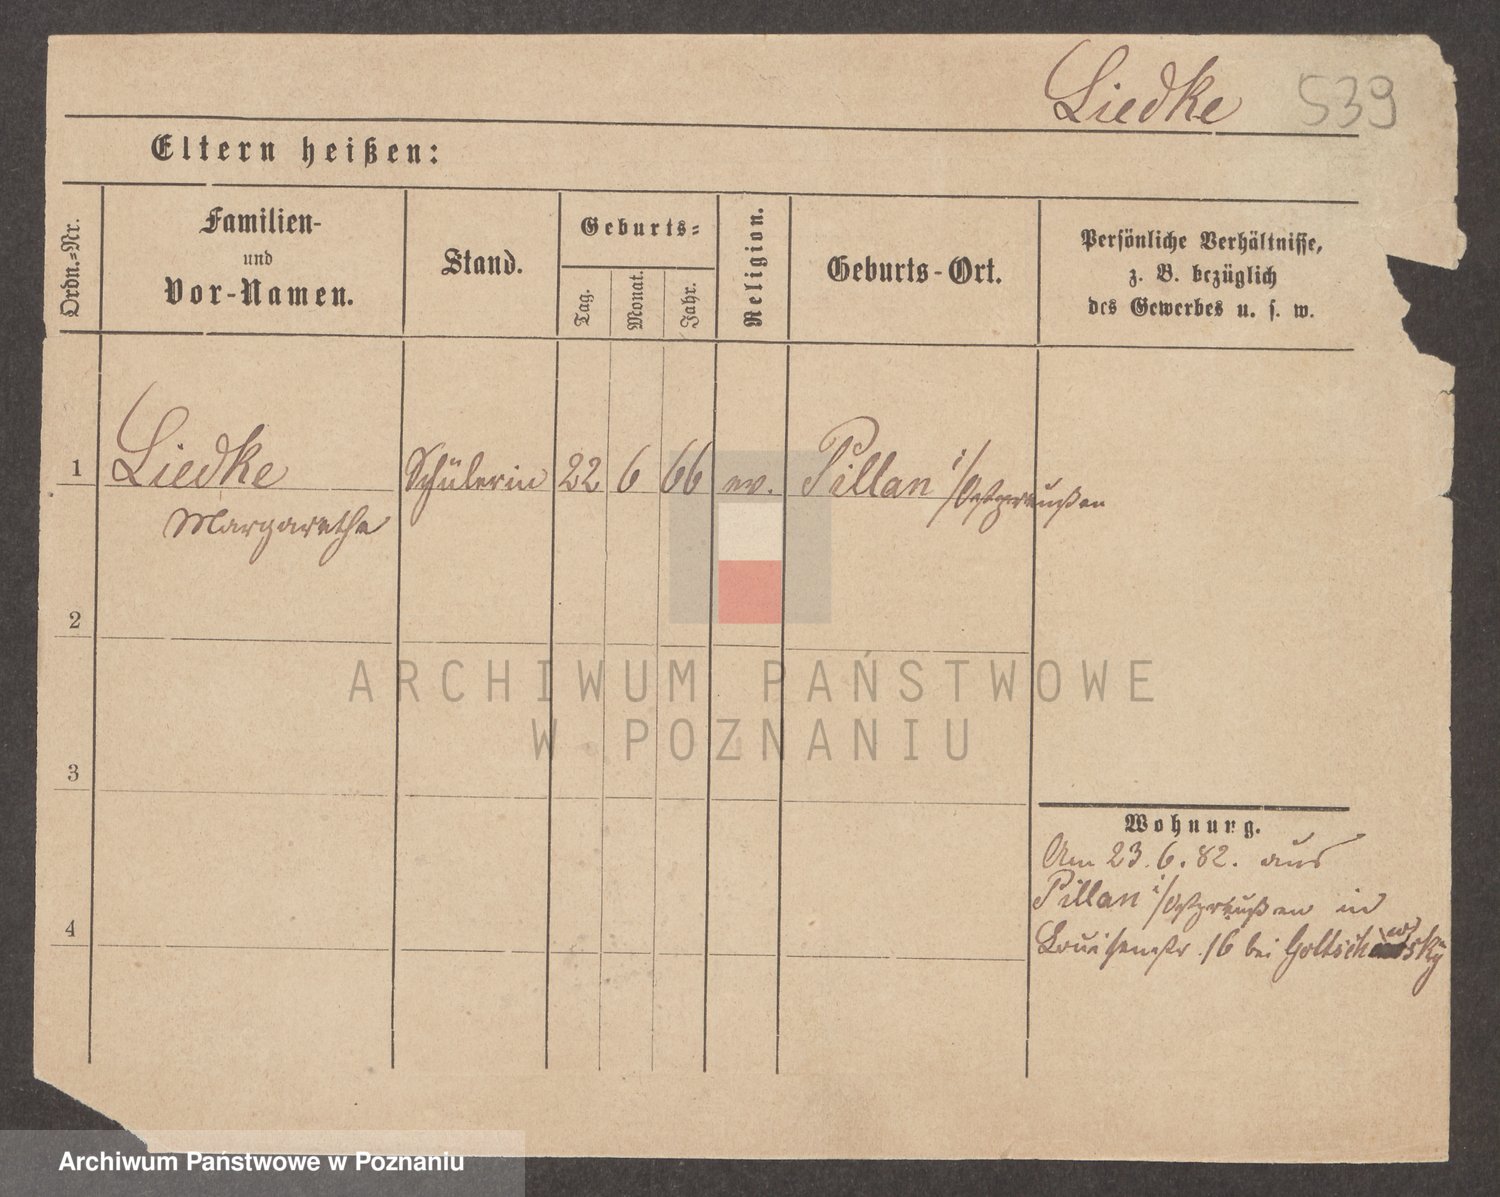 Liedke 539
Eltern heißen:
Ordn.-Nr.
Familien-
und
Vor-Namen.
Stand.
Geburts-
Tag.
Monat.
Jahr.
Religion.
Geburts-Ort.
Persönliche Verhältnisse,
z. B. bezüglich
des Gewerbes u. s. w.
1 Liedke Schülerin 22 6 66 ev. Pillau i/Ostpreußen
Margarethe
2
3
4
Wohnung.
Am 23.6.82. aus
Pillau i/Ostpreußen in
Louisenstr. 16 bei
ARCHIWUM PAŃSTWOWE
W POZNANIU
Archiwum Państwowe w Poznaniu